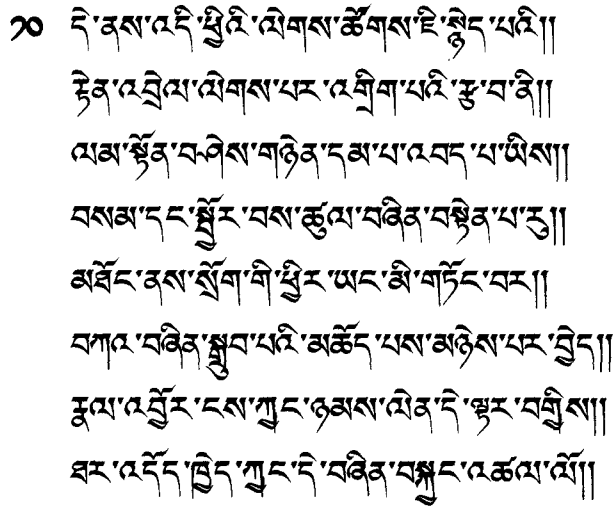 ༡༠ དེ་ནས་འདི་ཕྱིའི་ལེགས་ཚོགས་ཇི་སྙེད་པའི།།
རྟེན་འབྲེལ་ལེགས་པར་འགྲིག་པའི་རྩ་བ་ནི།།
ལམ་སྟོན་བཤེས་གཉེན་དམ་པ་འབད་པ་ཡིས།།
བསམ་དང་སྦྱོར་བས་ཚུལ་བཞིན་བསྟེན་པ་རུ།།
མཐོང་ནས་སྲོག་གི་ཕྱིར་ཡང་མི་གཏོང་བར།།
བཀའ་བཞིན་སྒྲུབ་པའི་མཆོད་པས་མཉེས་པར་བྱེད།།
རྣལ་འབྱོར་ངས་ཀྱང་ཉམས་ལེན་དེ་ལྟར་བགྱིས།།
ཐར་འདོད་ཁྱེད་ཀྱང་དེ་བཞིན་བསྐྱང་འཚལ་ལོ།།